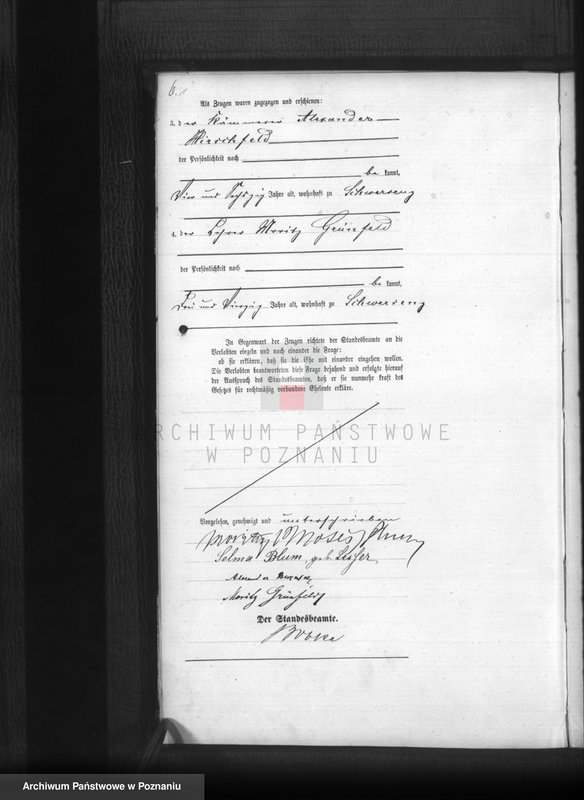 6.
Als Zeugen waren zugezogen und erschienen:
3. der Kämmerer Alexander
Hirschfeld
der Persönlichkeit nach
be kannt,
Vier und Sechzig Jahre alt, wohnhaft zu Schwersenz
4. der Lehrer Moritz Grünfeld
der Persönlichkeit nach
be kannt,
Drei und Vierzig Jahre alt, wohnhaft zu Schwersenz
In Gegenwart der Zeugen richtete der Standesbeamte an die
Verlobten einzeln und nach einander die Frage:
ob sie erklären, daß sie die Ehe mit einander eingehen wollen.
Die Verlobten beantworteten diese Frage bejahend und erfolgte hierauf
der Ausspruch des Standesbeamten, daß er sie nunmehr kraft des
Gesetzes für rechtmäßig verbundene Eheleute erkläre.
ARCHIWUM PAŃSTWOWE
W POZNANIU
Vorgelesen, genehmigt und unterschrieben
Moritz (Moses) Blum
Selma Blum geb. Lesser
Moritz Grünfeld
Der Standesbeamte.
Archiwum Państwowe w Poznaniu